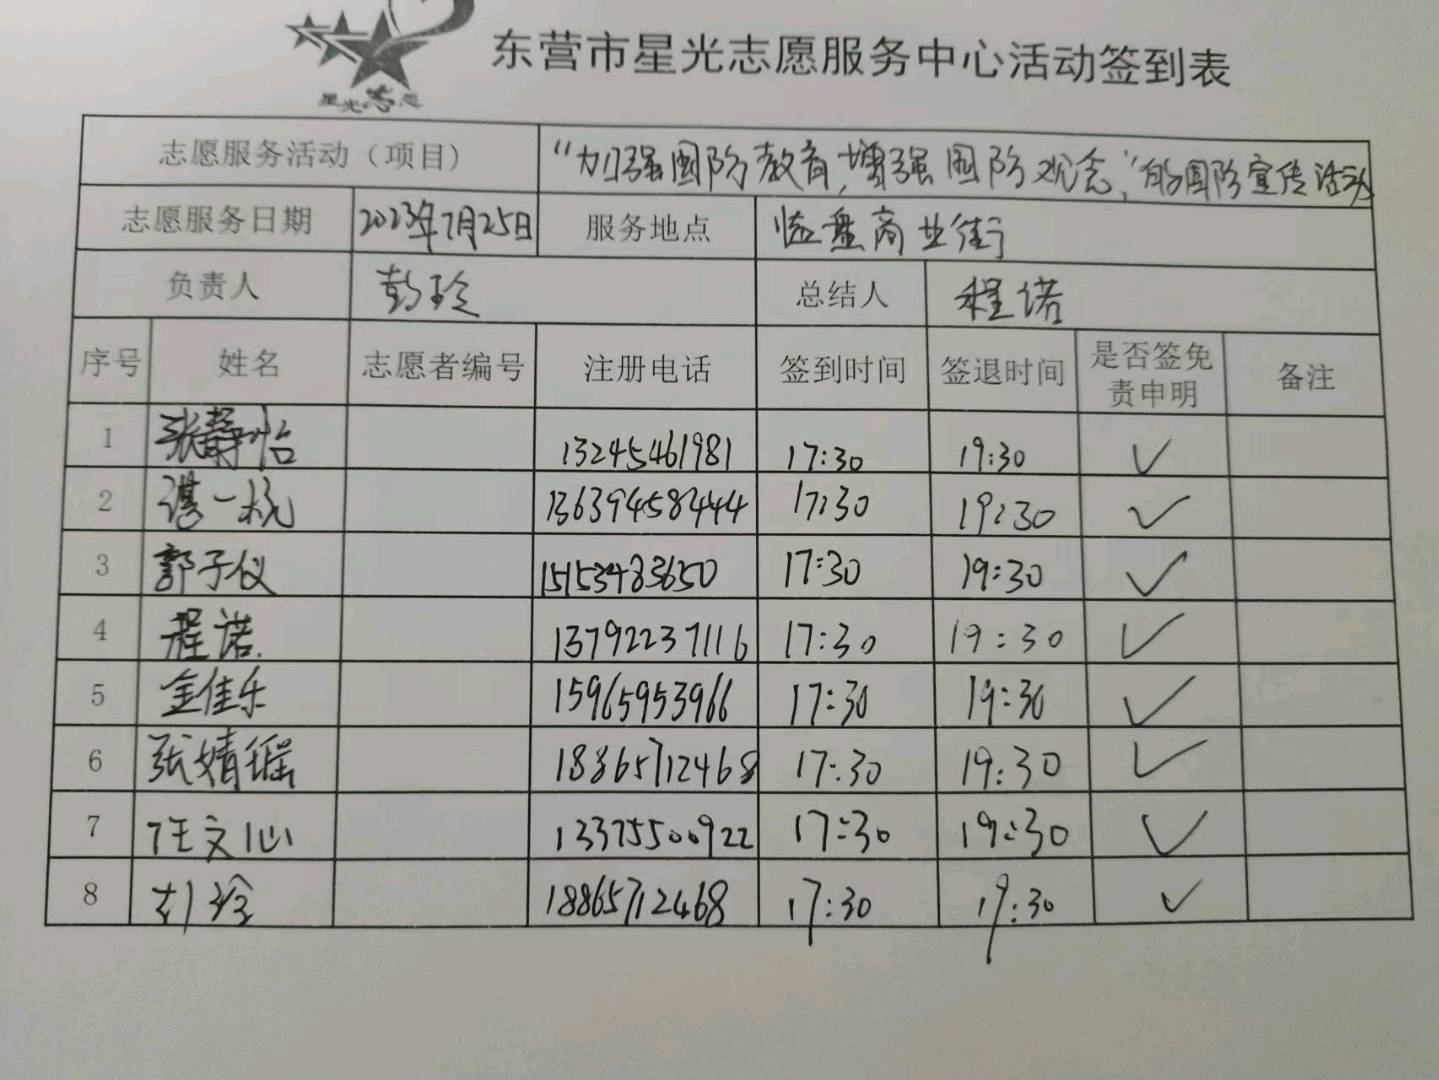 星光志愿
东营市星光志愿服务中心活动签到表
志愿服务活动（项目） “加强国防教育，增强国防观念，”的国防宣传活动
志愿服务日期 2023年7月25日 服务地点 临盘商业街
负责人 彭玲 总结人 程诺
序号 姓名 志愿者编号 注册电话 签到时间 签退时间 是否签免责申明 备注
1 张静怡 13245461981 17:30 19:30 ✓
2 谌一杭 13639458444 17:30 19:30 ✓
3 郭子仪 15153483650 17:30 19:30 ✓
4 程诺 13792237116 17:30 19:30 ✓
5 金佳乐 15965953966 17:30 19:30 ✓
6 张婧瑶 18865712468 17:30 19:30 ✓
7 汪文心 13375500922 17:30 19:30 ✓
8 彭玲 18865712468 17:30 19:30 ✓